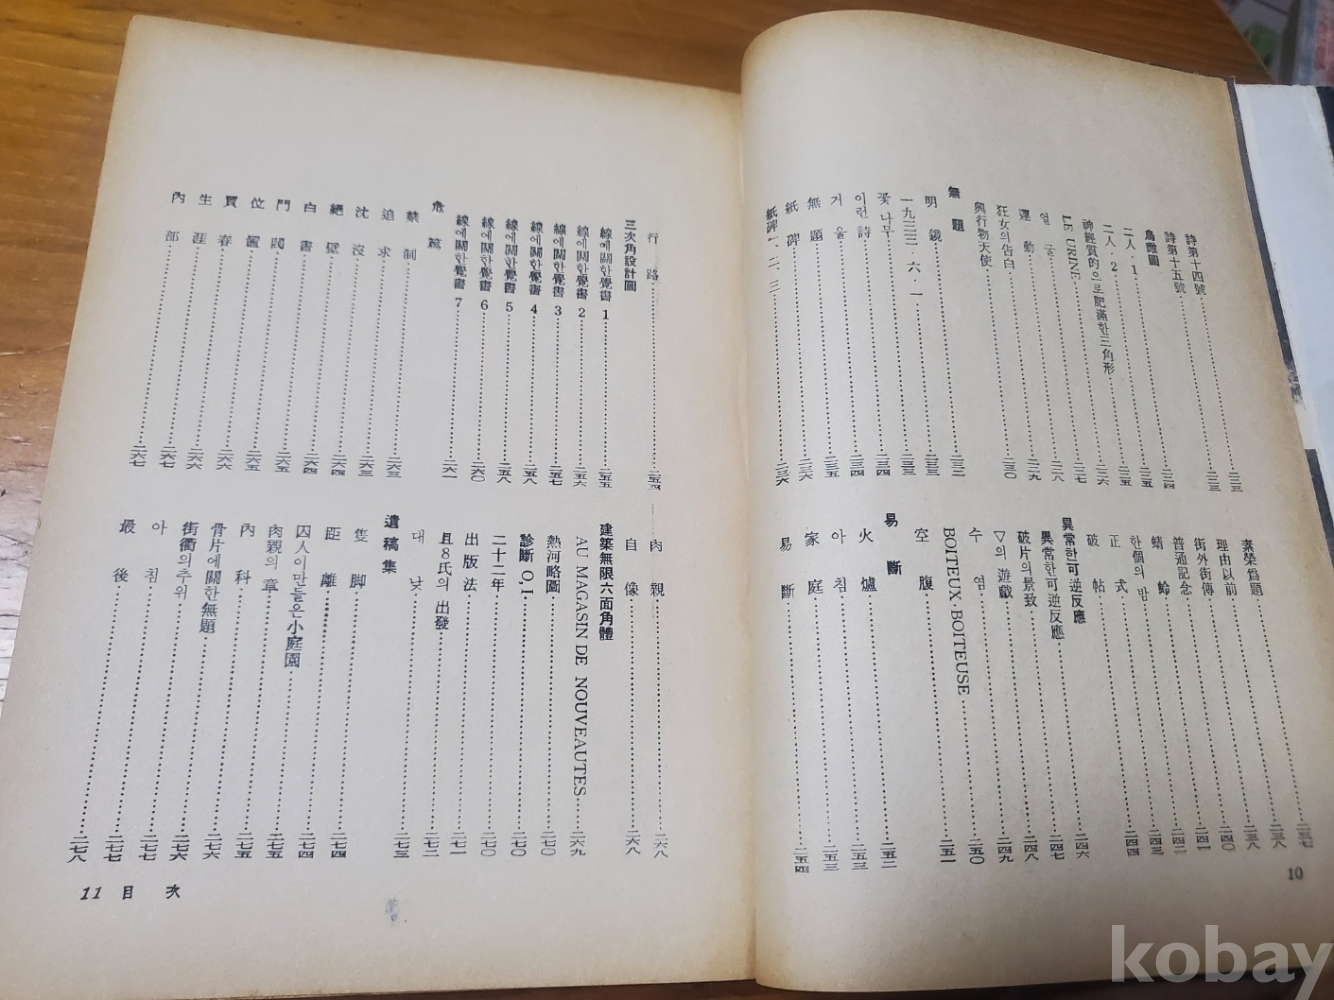 詩第十四號……二三三
詩第十五號……二三三
烏瞰圖……二三四
二人‧1……二三五
二人‧2……二三五
神經質的으로肥滿한三角形……二三六
LE URINE……二三七
얼굴……二三八
運動……二二九
狂女의告白……二三〇
興行物天使
無題……二三二
明鏡……二三三
一九三三‧六‧一……二三三
꽃나무……二三四
이런詩……二三四
거울……二三五
無題……二三六
紙碑……二三六
紙碑一、二、三……二三六
素榮爲題……二三七
理由以前……二三八
街外街傳……二四〇
普通記念……二四一
蜻蛉……二四二
한個의밤……二四三
正式……二四四
破帖
異常한可逆反應……二四六
異常한可逆反應……二四七
破片의景致……二四八
▽의遊戱……二四九
수염……二五〇
BOITEUX BOITEUSE……二五一
空腹
易斷……二五二
火爐……二五三
아침……二五三
家庭……二五四
易斷……二五四
10
行路……二五四
三次角設計圖
線에關한覺書 1……二五五
線에關한覺書 2……二五六
線에關한覺書 3……二五七
線에關한覺書 4……二五八
線에關한覺書 5……二五八
線에關한覺書 6……二六〇
線에關한覺書 7……二六一
危篤
禁制……二六三
追求……二六三
沈沒……二六三
絶壁……二六四
白書……二六四
門閥……二六五
位置……二六五
買春……二六六
生涯……二六六
內部……二六七
肉親……二六八
自像……二六八
建築無限六面角體
AU MAGASIN DE NOUVEAUTES……二六九
熱河略圖……二七〇
診斷 0,1……二七〇
二十二年……二七〇
出版法……二七一
且8氏의 出發……二七二
대낮……二七三
遺稿集
隻脚……二七四
距離……二七四
囚人이만들은小庭園……二七四
肉親의章……二七五
內科……二七五
骨片에關한無題……二七六
街衢의추위……二七六
아침……二七七
最後……二七七
11 目次
kobay